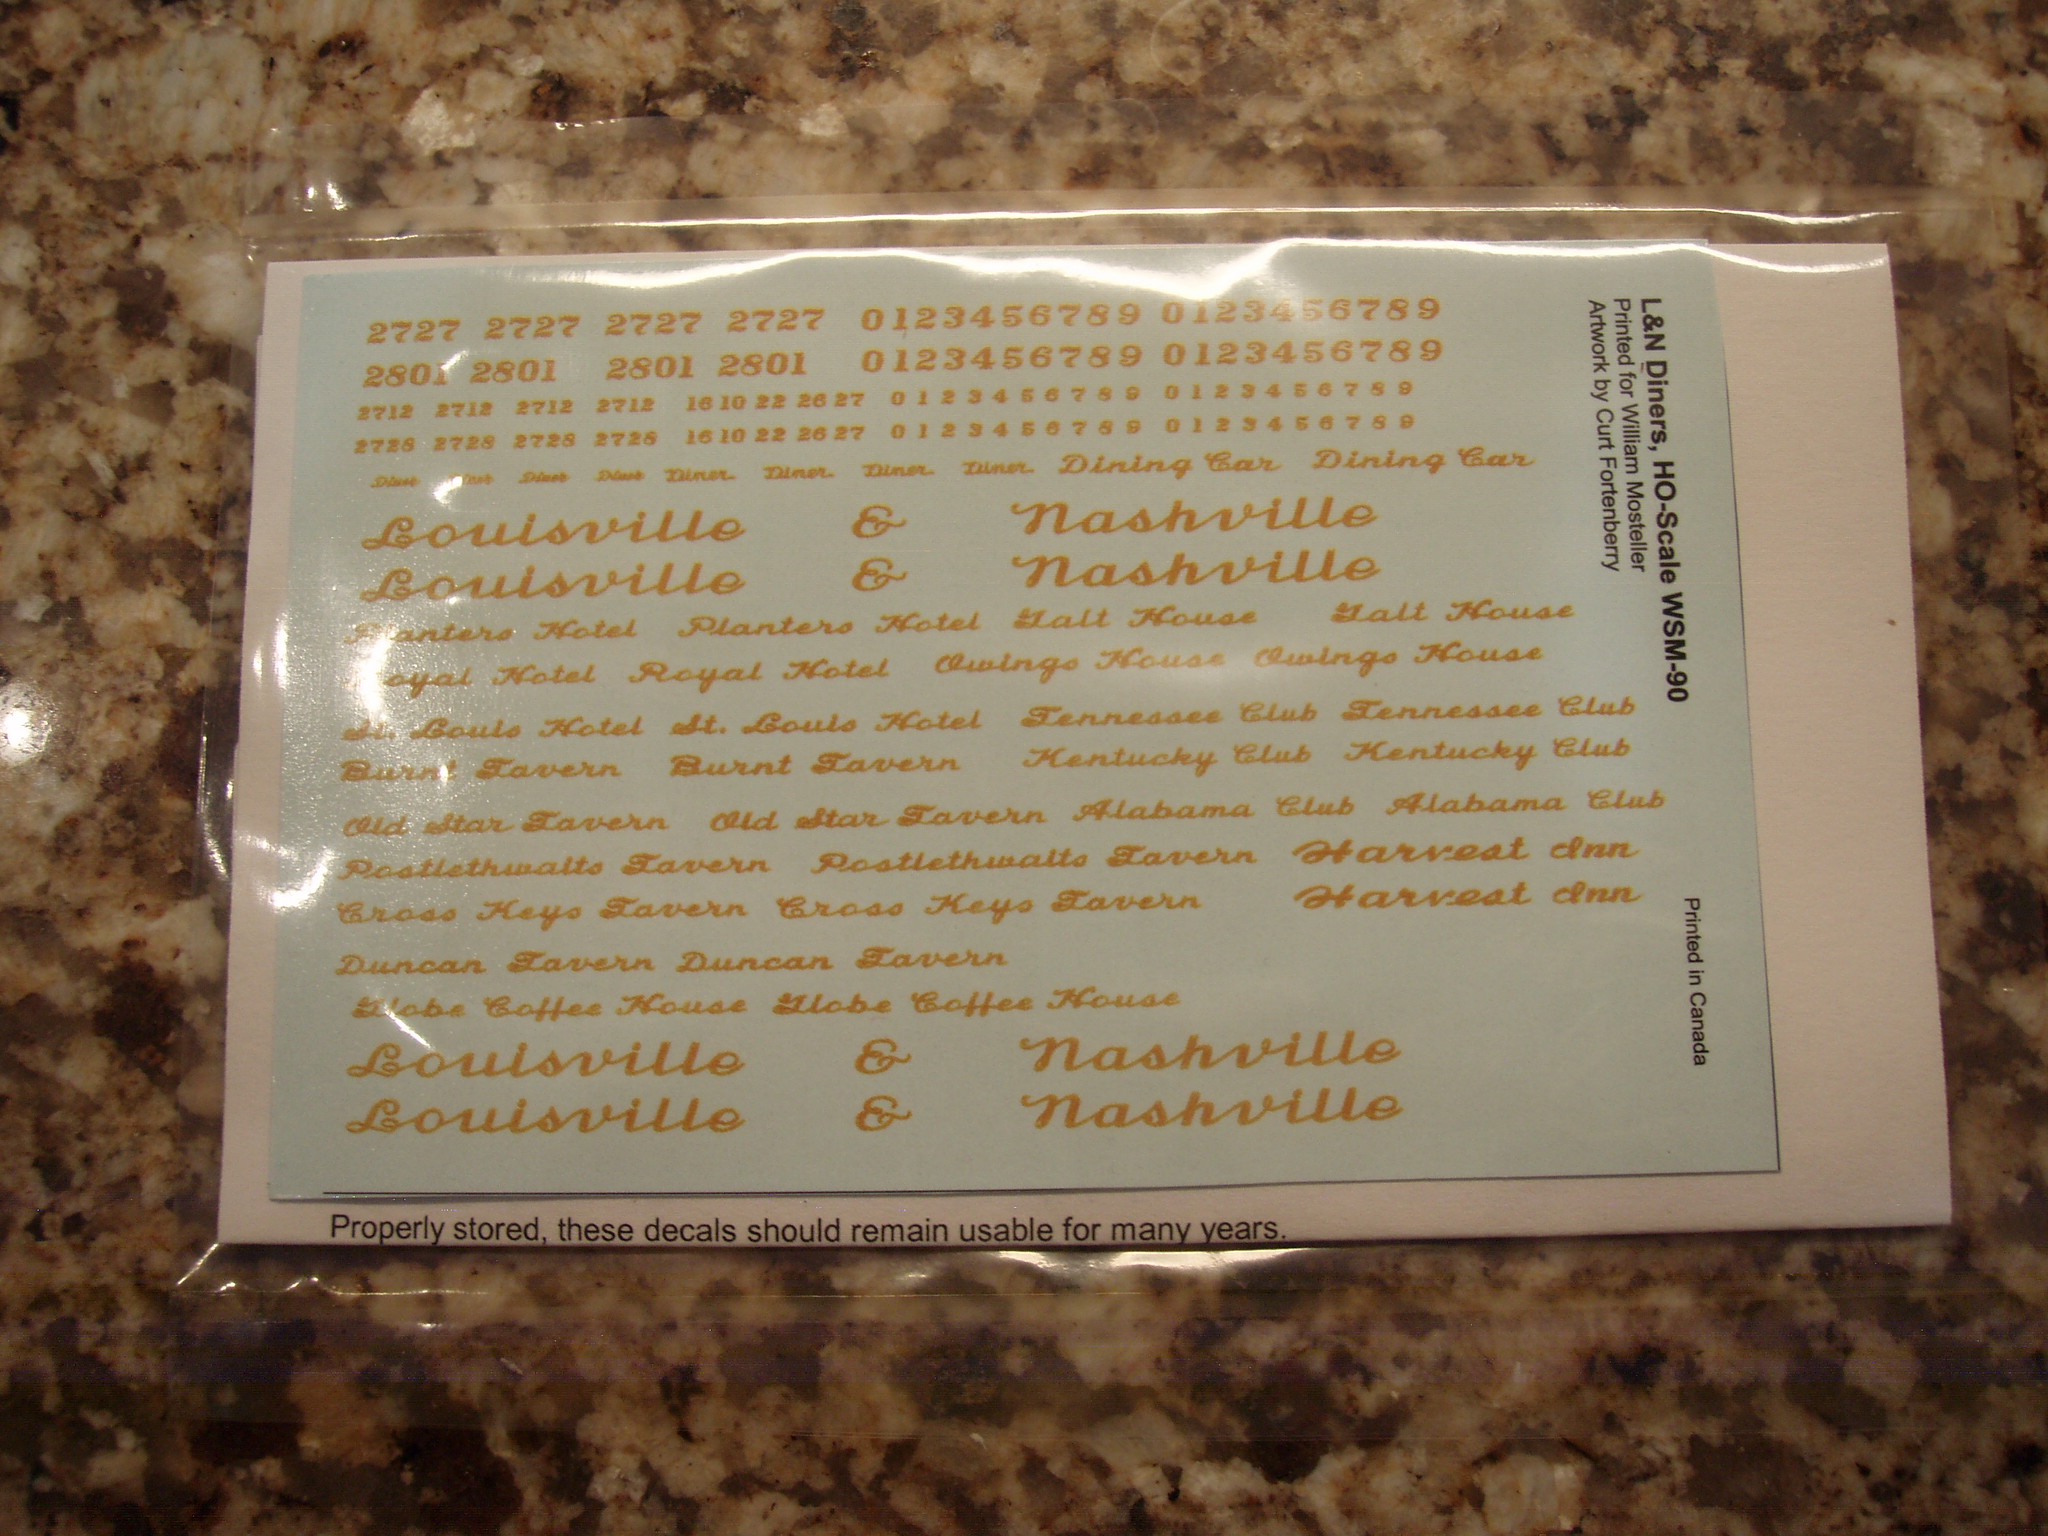 2727 2727 2727 2727 0123456789 0123456789
2801 2801 2801 2801 0123456789 0123456789
2712 2712 2712 2712 16 10 22 26 27 0 1 2 3 4 5 6 7 8 9 0 1 2 3 4 5 6 7 8 9
2728 2728 2728 2728 16 10 22 26 27 0 1 2 3 4 5 6 7 8 9 0 1 2 3 4 5 6 7 8 9
Diner Diner Diner Diner Diner. Diner. Diner. Diner. Dining Car Dining Car
Louisville & Nashville
Louisville & Nashville
Planters Hotel Planters Hotel Galt House Galt House
Royal Hotel Royal Hotel Owings House Owings House
St. Louis Hotel St. Louis Hotel Tennessee Club Tennessee Club
Burnt Tavern Burnt Tavern Kentucky Club Kentucky Club
Old Star Tavern Old Star Tavern Alabama Club Alabama Club
Postlethwaits Tavern Postlethwaits Tavern Harvest Inn
Cross Keys Tavern Cross Keys Tavern Harvest Inn
Duncan Tavern Duncan Tavern
Globe Coffee House Globe Coffee House
Louisville & Nashville
Louisville & Nashville
L&N Diners, HO-Scale WSM-90
Printed for William Mosteller
Artwork by Curt Fortenberry
Printed in Canada
Properly stored, these decals should remain usable for many years.